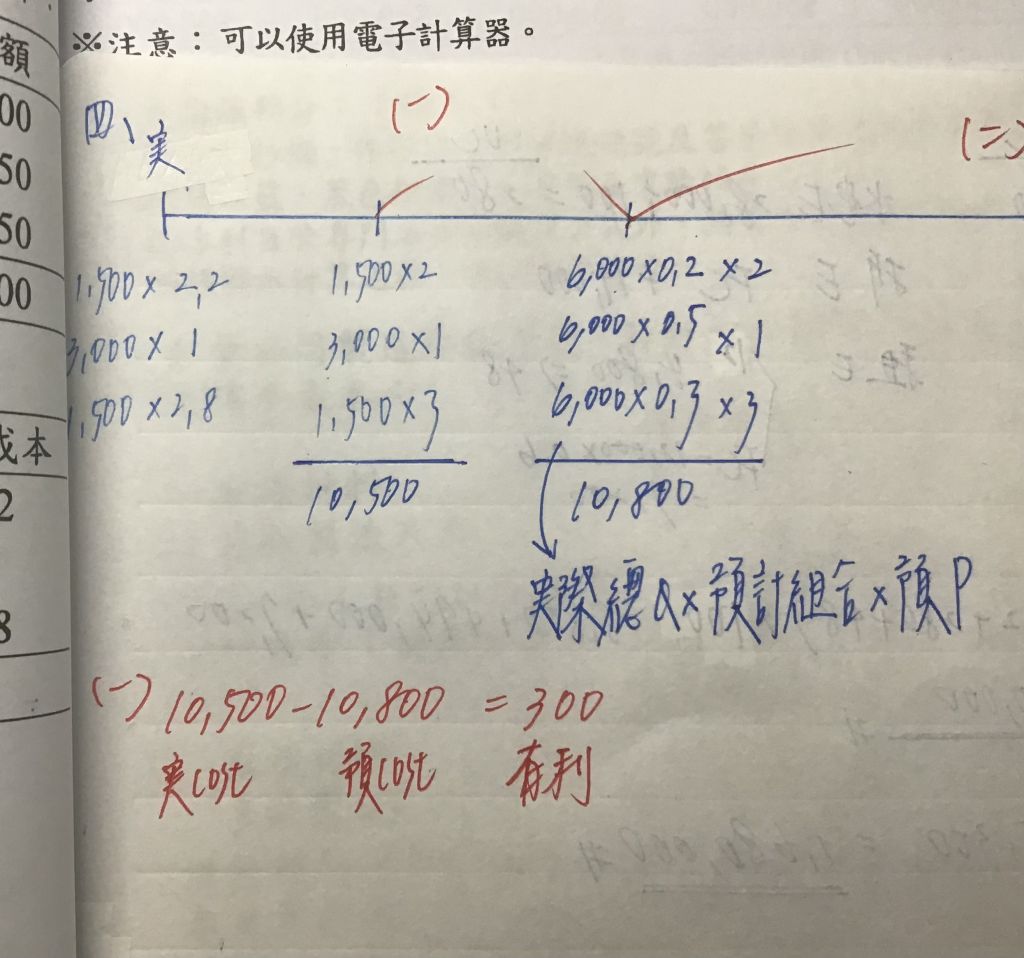 ※注意：可以使用電子計算器。
額
00
50
50
00
成本
2
8
四、実
(一)
(二)
1,500×2,2 1,500×2 6,000×0,2×2
3,000×1 3,000×1 6,000×0,5×1
1,500×2,8 1,500×3 6,000×0,3×3
10,500 10,800
実際總Q×預計組合×預P
(一) 10,500-10,800 = 300
実cost 預cost 有利